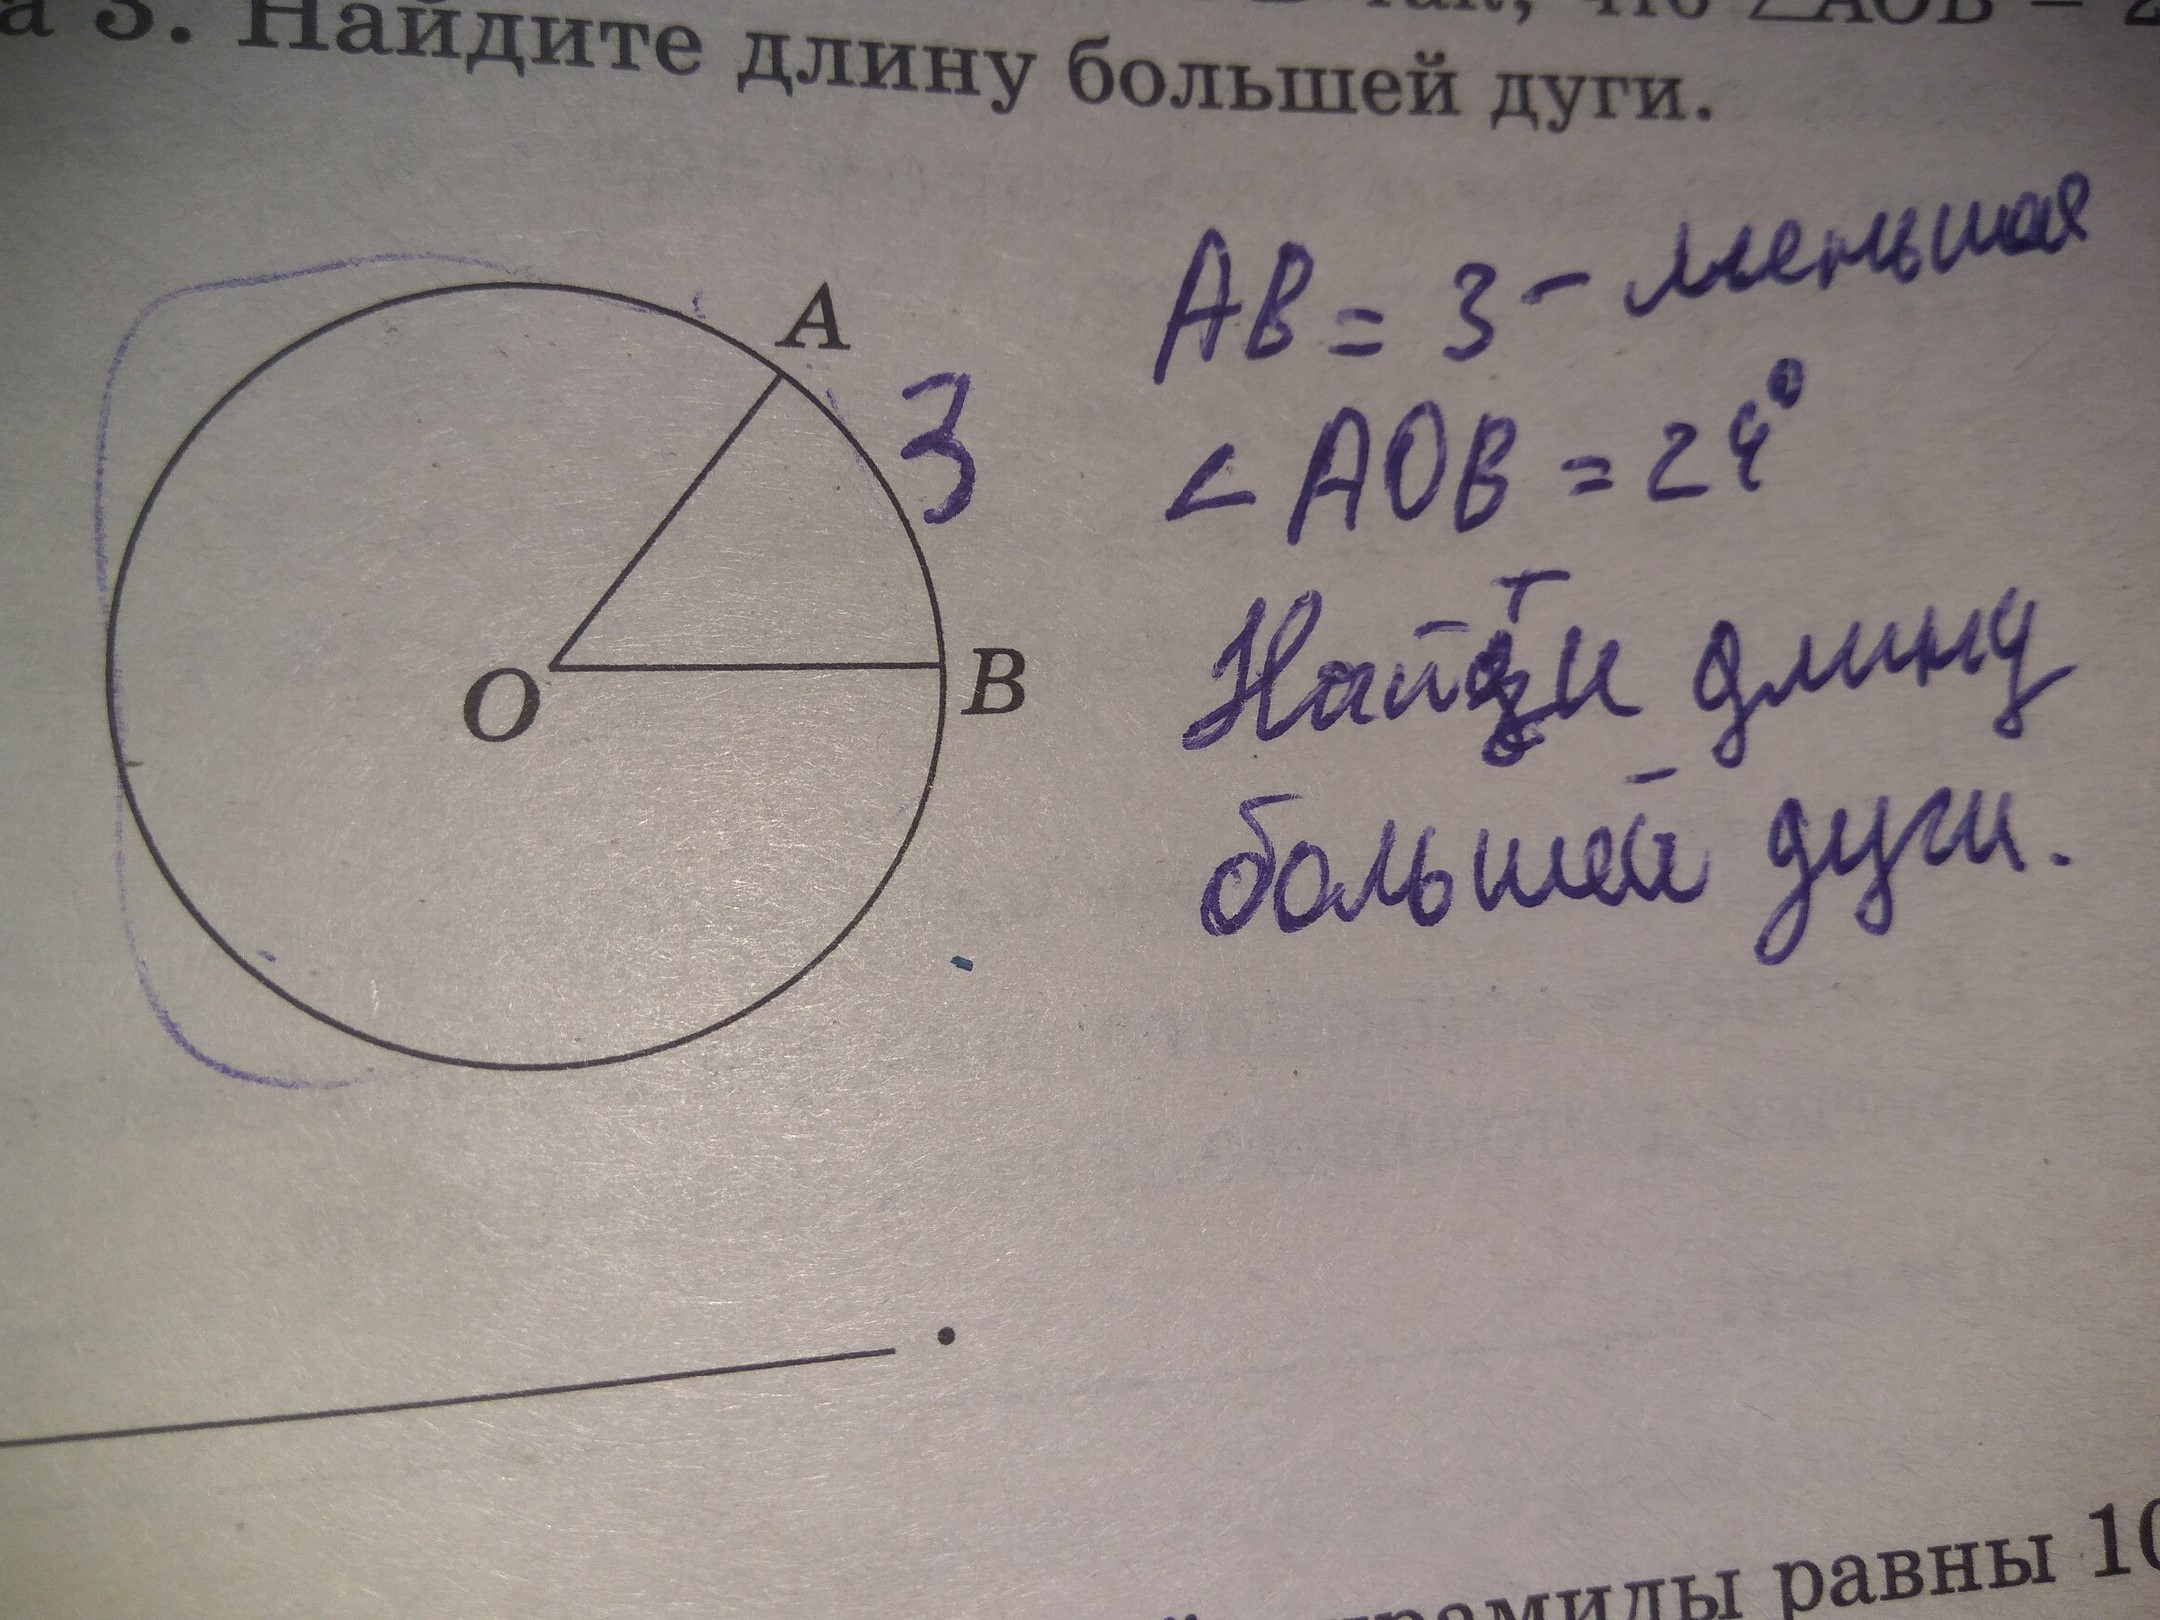 так, что ∠AOB = 2
а 3. Найдите длину большей дуги.
A
3
O
B
AB = 3 - меньшая
∠ AOB = 24°
Найти длину
большей дуги.
равны 10